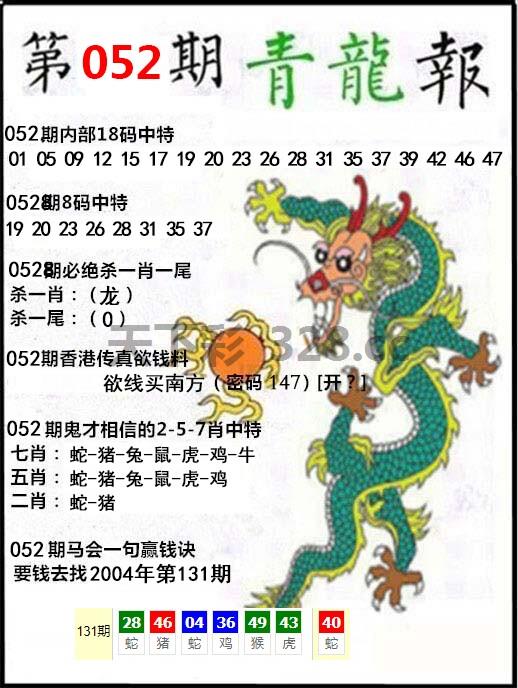 第052期青龍報
052期内部18码中特
01 05 09 12 15 17 19 20 23 26 28 31 35 37 39 42 46 47
052期8码中特
19 20 23 26 28 31 35 37
052期必绝杀一肖一尾
杀一肖：（龙）
杀一尾：（0）
天下彩 1328.cc
052期香港传真欲钱料
欲线买南方（密码147）[开？]
052期鬼才相信的2-5-7肖中特
七肖：蛇-猪-兔-鼠-虎-鸡-牛
五肖：蛇-猪-兔-鼠-虎-鸡
二肖：蛇-猪
052期马会一句赢钱诀
要钱去找2004年第131期
131期 28 46 04 36 49 43 40
蛇 猪 蛇 鸡 猴 虎 蛇